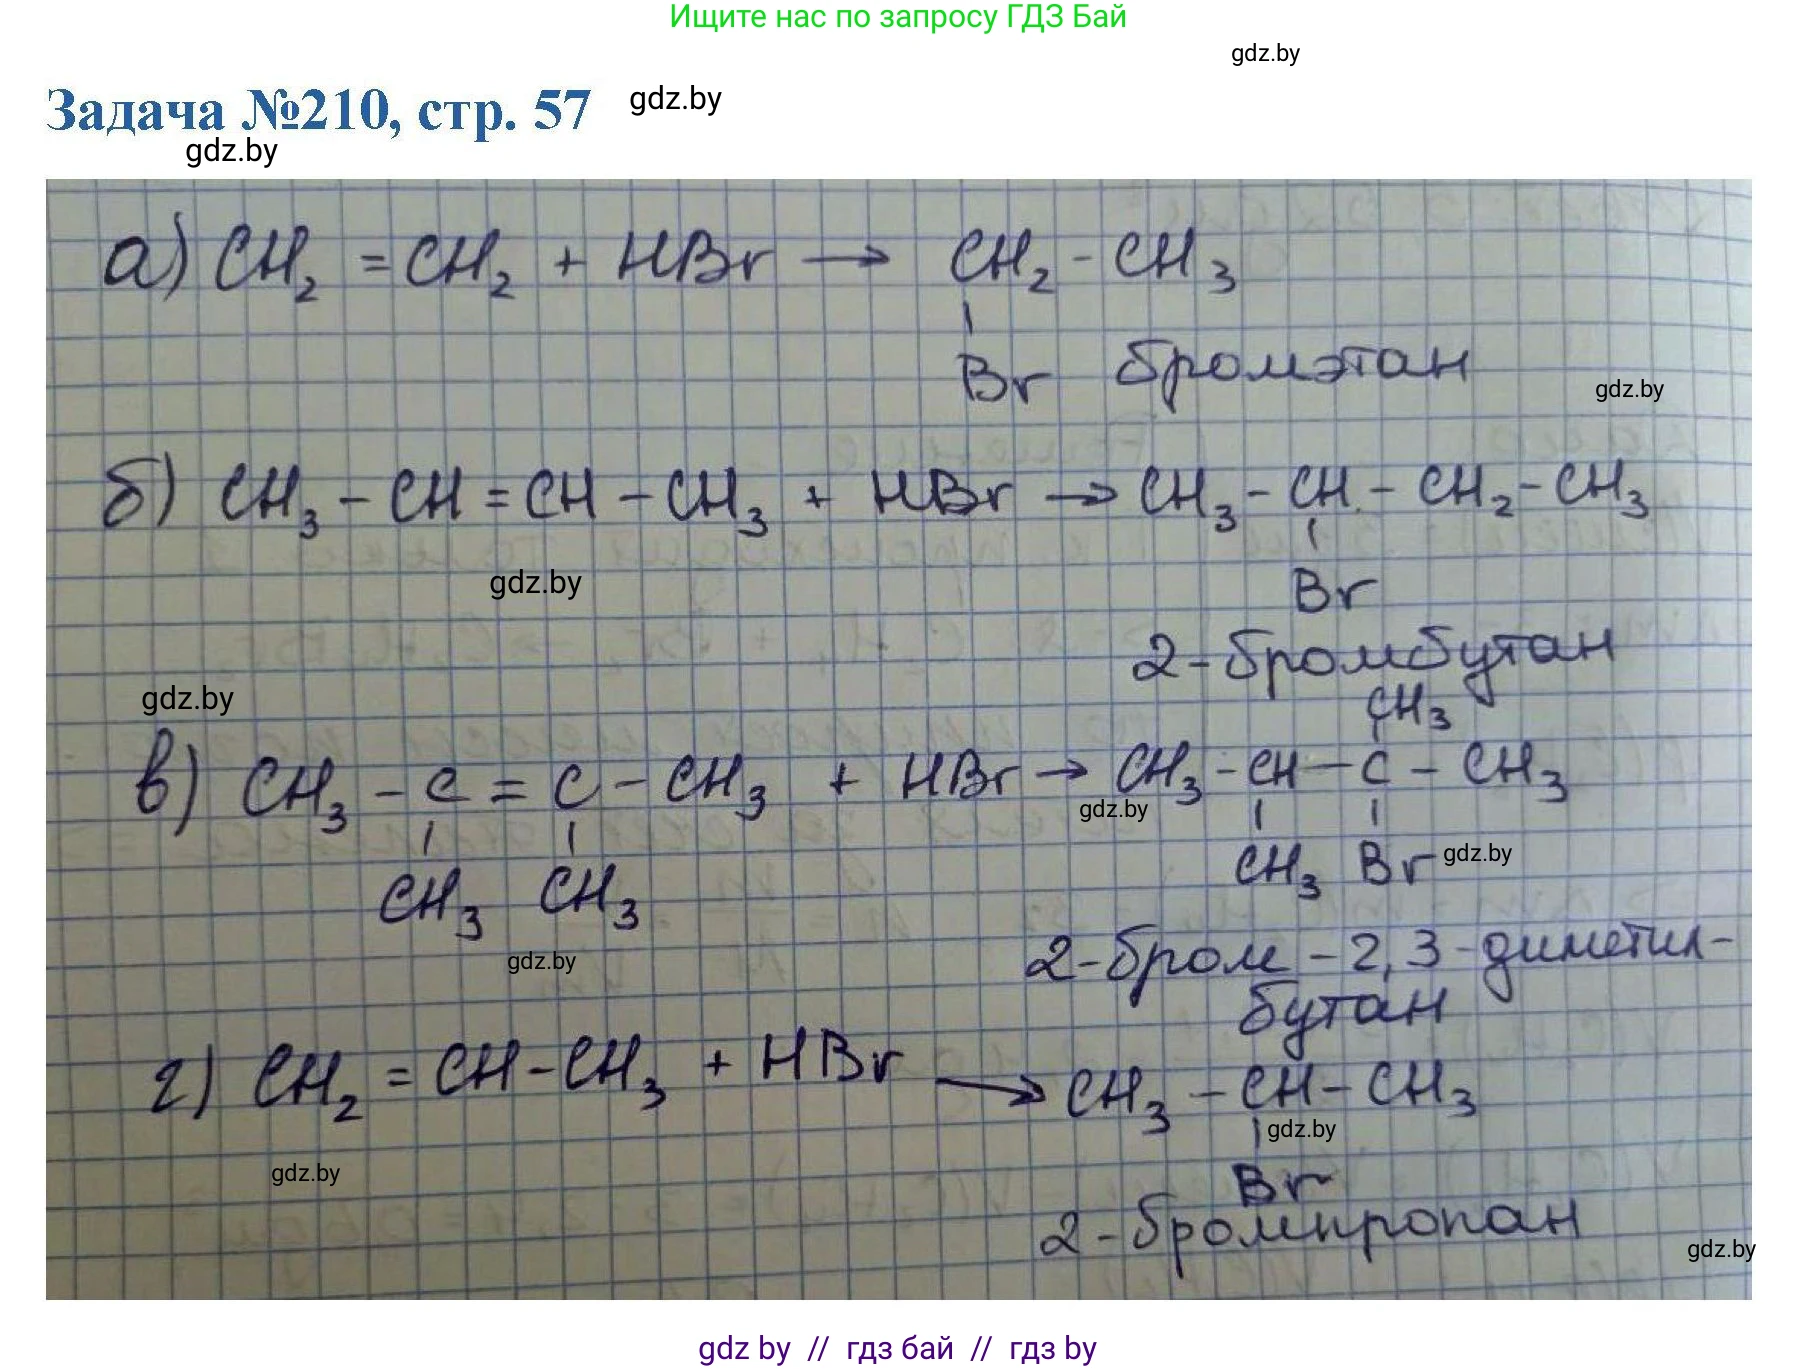 Ищите нас по запросу ГДЗ Бай
gdz.by
Задача №210, стр. 57 gdz.by
gdz.by
а) CH₂ = CH₂ + HBr → CH₂ - CH₃
Br бромэтан
gdz.by
б) CH₃ - CH = CH - CH₃ + HBr → CH₃ - CH - CH₂ - CH₃
gdz.by
Br
2-бромбутан
gdz.by
CH₃
в) CH₃ - C = C - CH₃ + HBr → CH₃ - CH - C - CH₃
gdz.by
CH₃ CH₃ CH₃ Br gdz.by
gdz.by
2-бром-2,3-диметил-
бутан
г) CH₂ = CH - CH₃ + HBr → CH₃ - CH - CH₃
gdz.by
gdz.by
Br
2-бромпропан
gdz.by
gdz by // гдз бай // гдз by